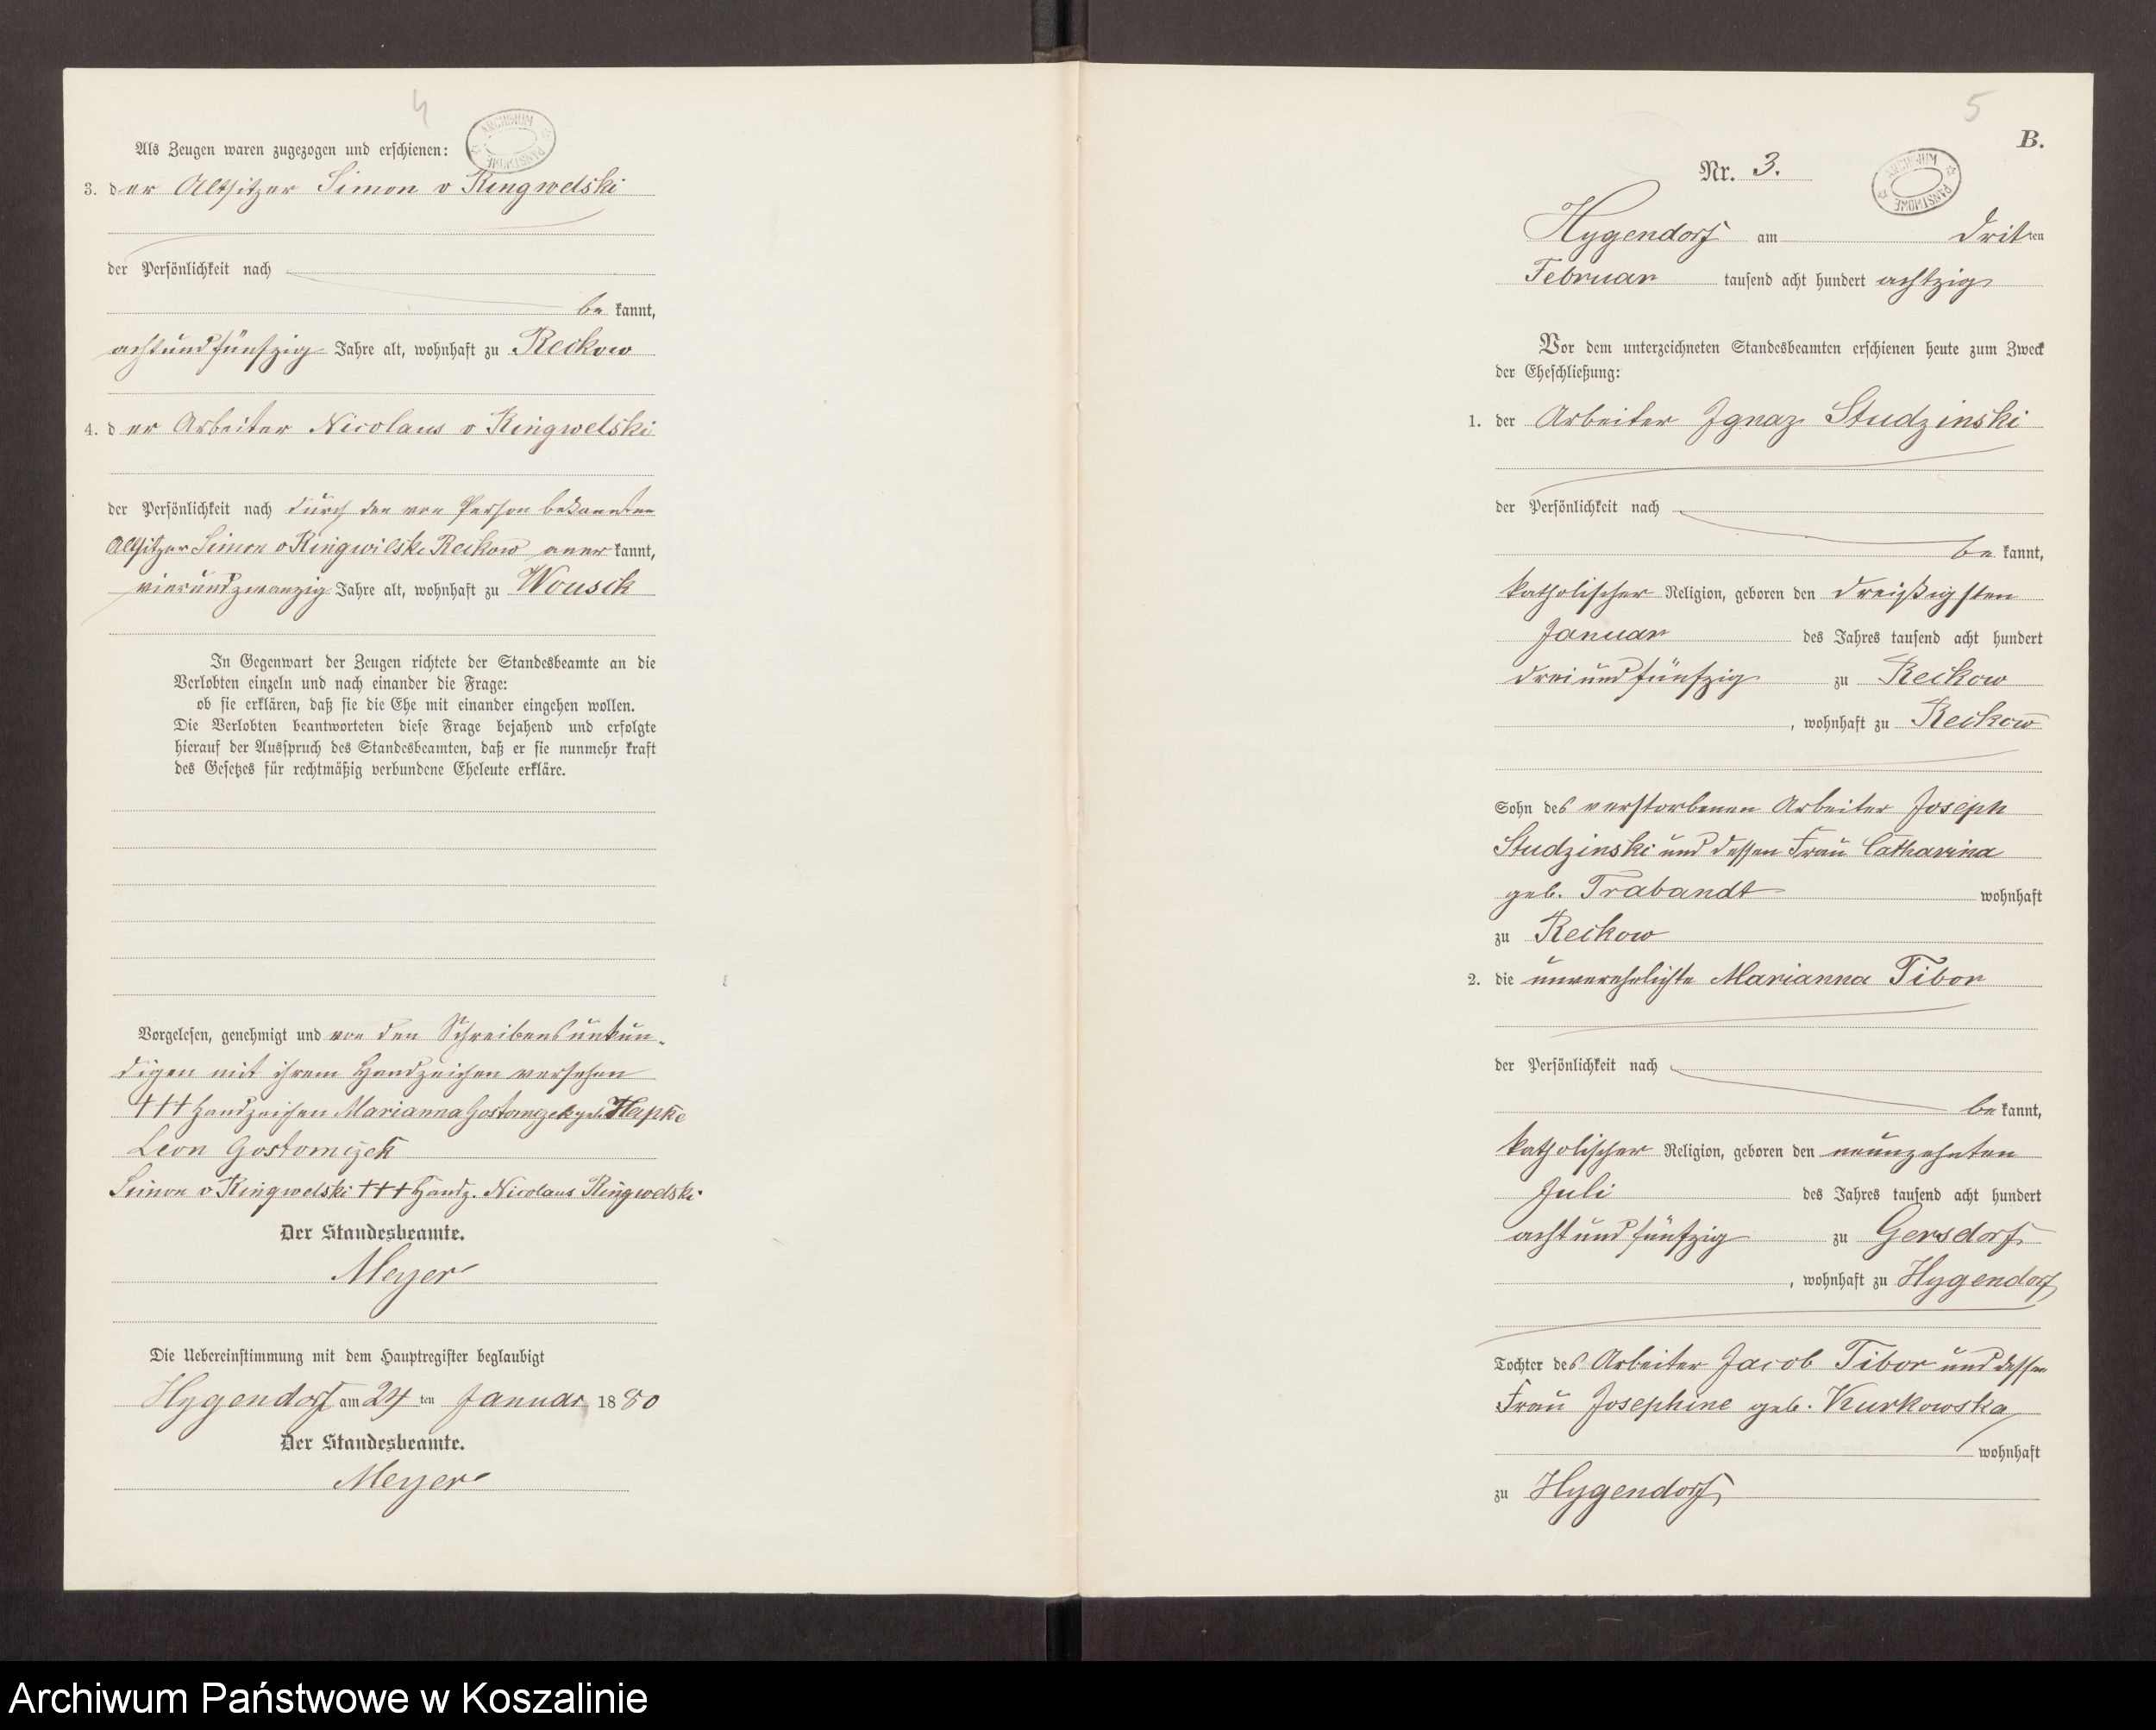 4
Als Zeugen waren zugezogen und erschienen:
3. der Altsitzer Simon v Ringwelski
der Persönlichkeit nach
bekannt,
achtundfünfzig Jahre alt, wohnhaft zu Reckow
4. der Arbeiter Nicolaus v Ringwelski
der Persönlichkeit nach durch den von Person bekannten
Altsitzer Simon v Ringwilski Reckow anerkannt,
vierundzwanzig Jahre alt, wohnhaft zu Wousek
In Gegenwart der Zeugen richtete der Standesbeamte an die
Verlobten einzeln und nach einander die Frage:
ob sie erklären, daß sie die Ehe mit einander eingehen wollen.
Die Verlobten beantworteten diese Frage bejahend und erfolgte
hierauf der Ausspruch des Standesbeamten, daß er sie nunmehr kraft
des Gesetzes für rechtmäßig verbundene Eheleute erkläre.
Vorgelesen, genehmigt und von den Schreibensunkun-
digen mit ihrem Handzeichen versehen
+++ Handzeichen Marianna Gostomczek geb. Hepke
Leon Gostomczek
Simon v Ringwelski +++ Handz. Nicolaus Ringwelski
Der Standesbeamte.
Meyer
Die Uebereinstimmung mit dem Hauptregister beglaubigt
Hygendorf am 24 ten Januar 1880
Der Standesbeamte.
Meyer
5
B.
Nr. 3.
Hygendorf am dritten
Februar tausend acht hundert achtzig
Vor dem unterzeichneten Standesbeamten erschienen heute zum Zweck
der Eheschließung:
1. der Arbeiter Ignaz Studzinski
der Persönlichkeit nach
bekannt,
katholischer Religion, geboren den dreißigsten
Januar des Jahres tausend acht hundert
dreiundfünfzig zu Reckow
, wohnhaft zu Reckow
Sohn des verstorbenen Arbeiter Joseph
Studzinski und dessen Frau Catharina
geb. Trabandt wohnhaft
zu Reckow
2. die unverehelichte Marianna Tibor
der Persönlichkeit nach
bekannt,
katholischer Religion, geboren den neunzehnten
Juli des Jahres tausend acht hundert
achtundfünfzig zu Gersdorf
, wohnhaft zu Hygendorf
Tochter des Arbeiter Jacob Tibor und dessen
Frau Josephine geb. Kurkowska
wohnhaft
zu Hygendorf
ARCHIWUM PAŃSTWOWE
ARCHIWUM PAŃSTWOWE
Archiwum Państwowe w Koszalinie